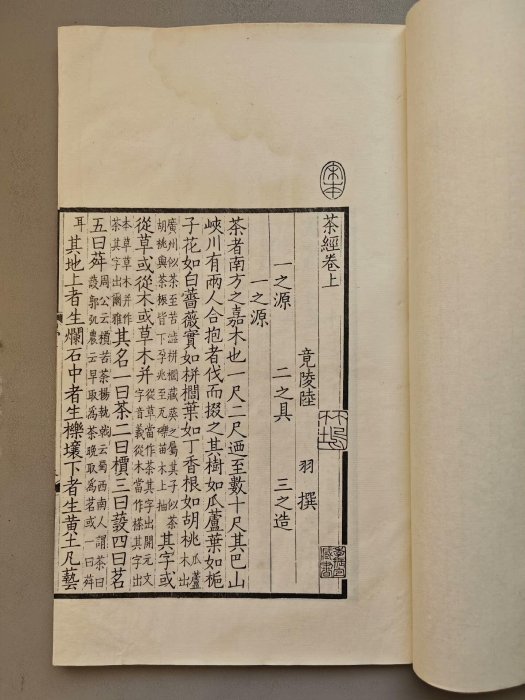 宋本
茶經卷上
竟陵陸 羽 撰
一之源 二之具 三之造
一之源
茶者南方之嘉木也一尺二尺迺至數十尺其巴山
峽川有兩人合抱者伐而掇之其樹如瓜蘆葉如梔
子花如白薔薇實如栟櫚葉如丁香根如胡桃瓜蘆木出
廣州似茶至苦澁栟櫚蒲葵之屬其子似茶
胡桃與茶根皆下孕兆至瓦礫苗木上抽
其字或
從草或從木或草木并
從草當作茶其字出開元文
字音義從木當作𣗪其字出
本草草木并作
荼其字出爾雅
其名一曰茶二曰檟三曰蔎四曰茗
五曰荈
周公云檟苦荼揚執戟云蜀西南人謂茶曰
蔎郭弘農云早取爲茶晚取爲茗或一曰荈
耳其地上者生爛石中者生櫟壤下者生黃土凡藝